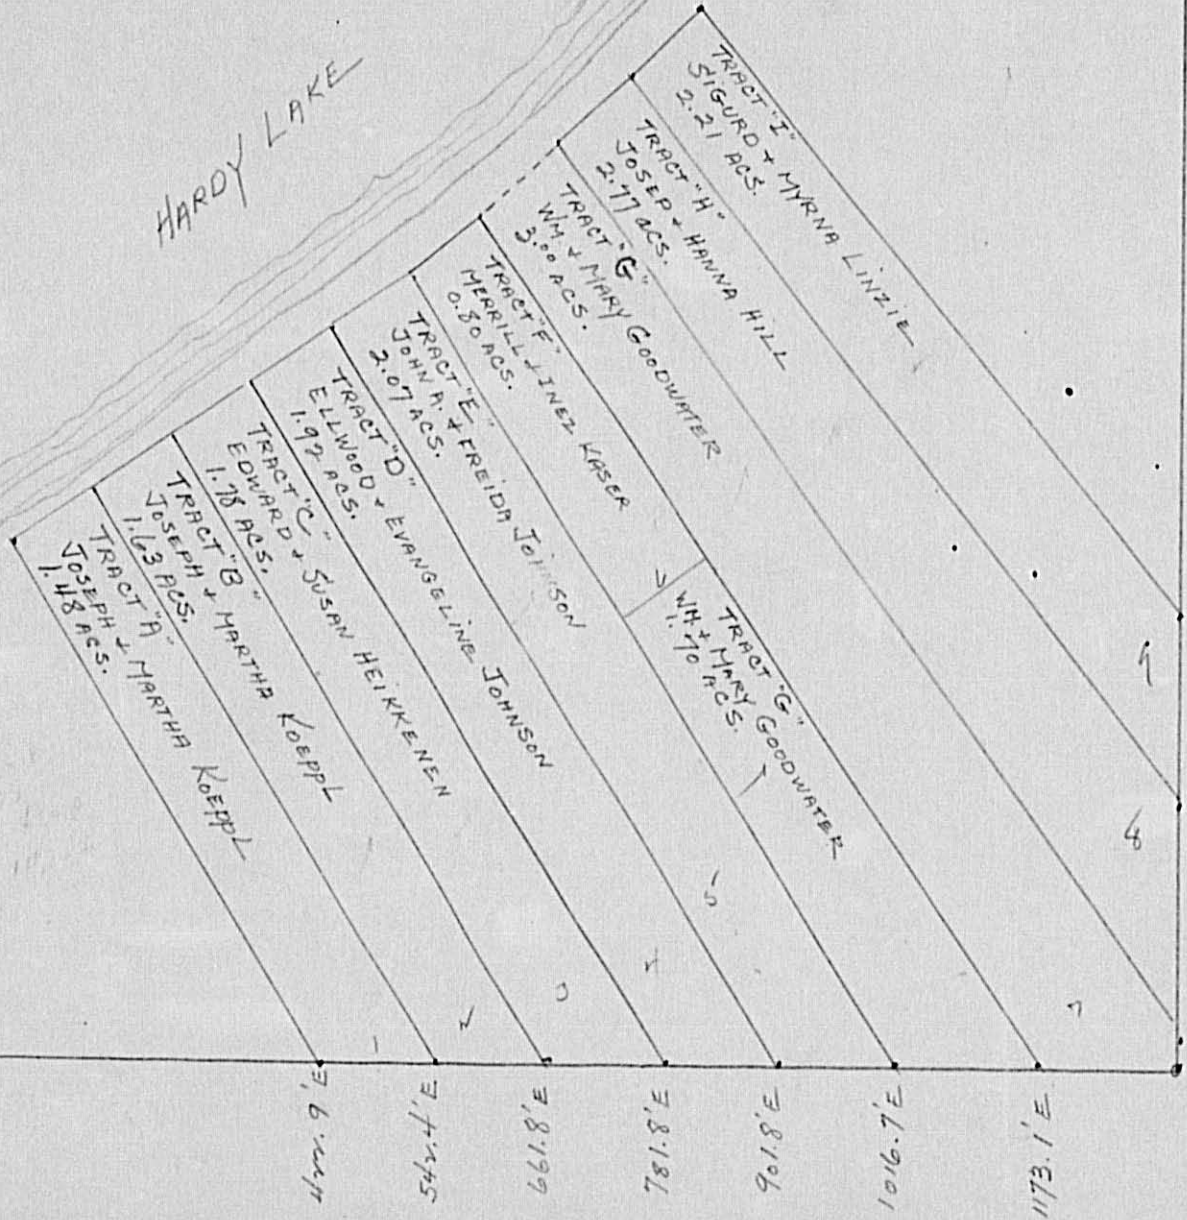 HARDY LAKE
TRACT "I"
SIGURD + MYRNA LINZIE
2.21 ACS.
TRACT "H"
JOSEP + HANNA HILL
2.77 ACS.
TRACT "G"
WM + MARY GOODWATER
3.00 ACS.
TRACT "F"
MERRILL + INEZ KASER
0.80 ACS.
TRACT "E"
JOHN A. + FREIDA JOHNSON
2.07 ACS.
TRACT "D"
ELLWOOD + EVANGELINE JOHNSON
1.92 ACS.
TRACT "C"
EDWARD + SUSAN HEIKKENEN
1.78 ACS.
TRACT "B"
JOSEPH + MARTHA KOEPPL
1.63 ACS.
TRACT "A"
JOSEPH + MARTHA KOEPPL
1.48 ACS.
TRACT "G"
WM + MARY GOODWATER
1.70 ACS.
1
2
3
4
5
7
8
9
661.8'E
781.8'E
901.8'E
1016.7'E
1173.1'E